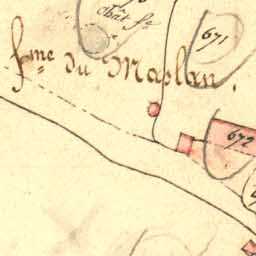 chât fe
671
fme du Maplan.
672